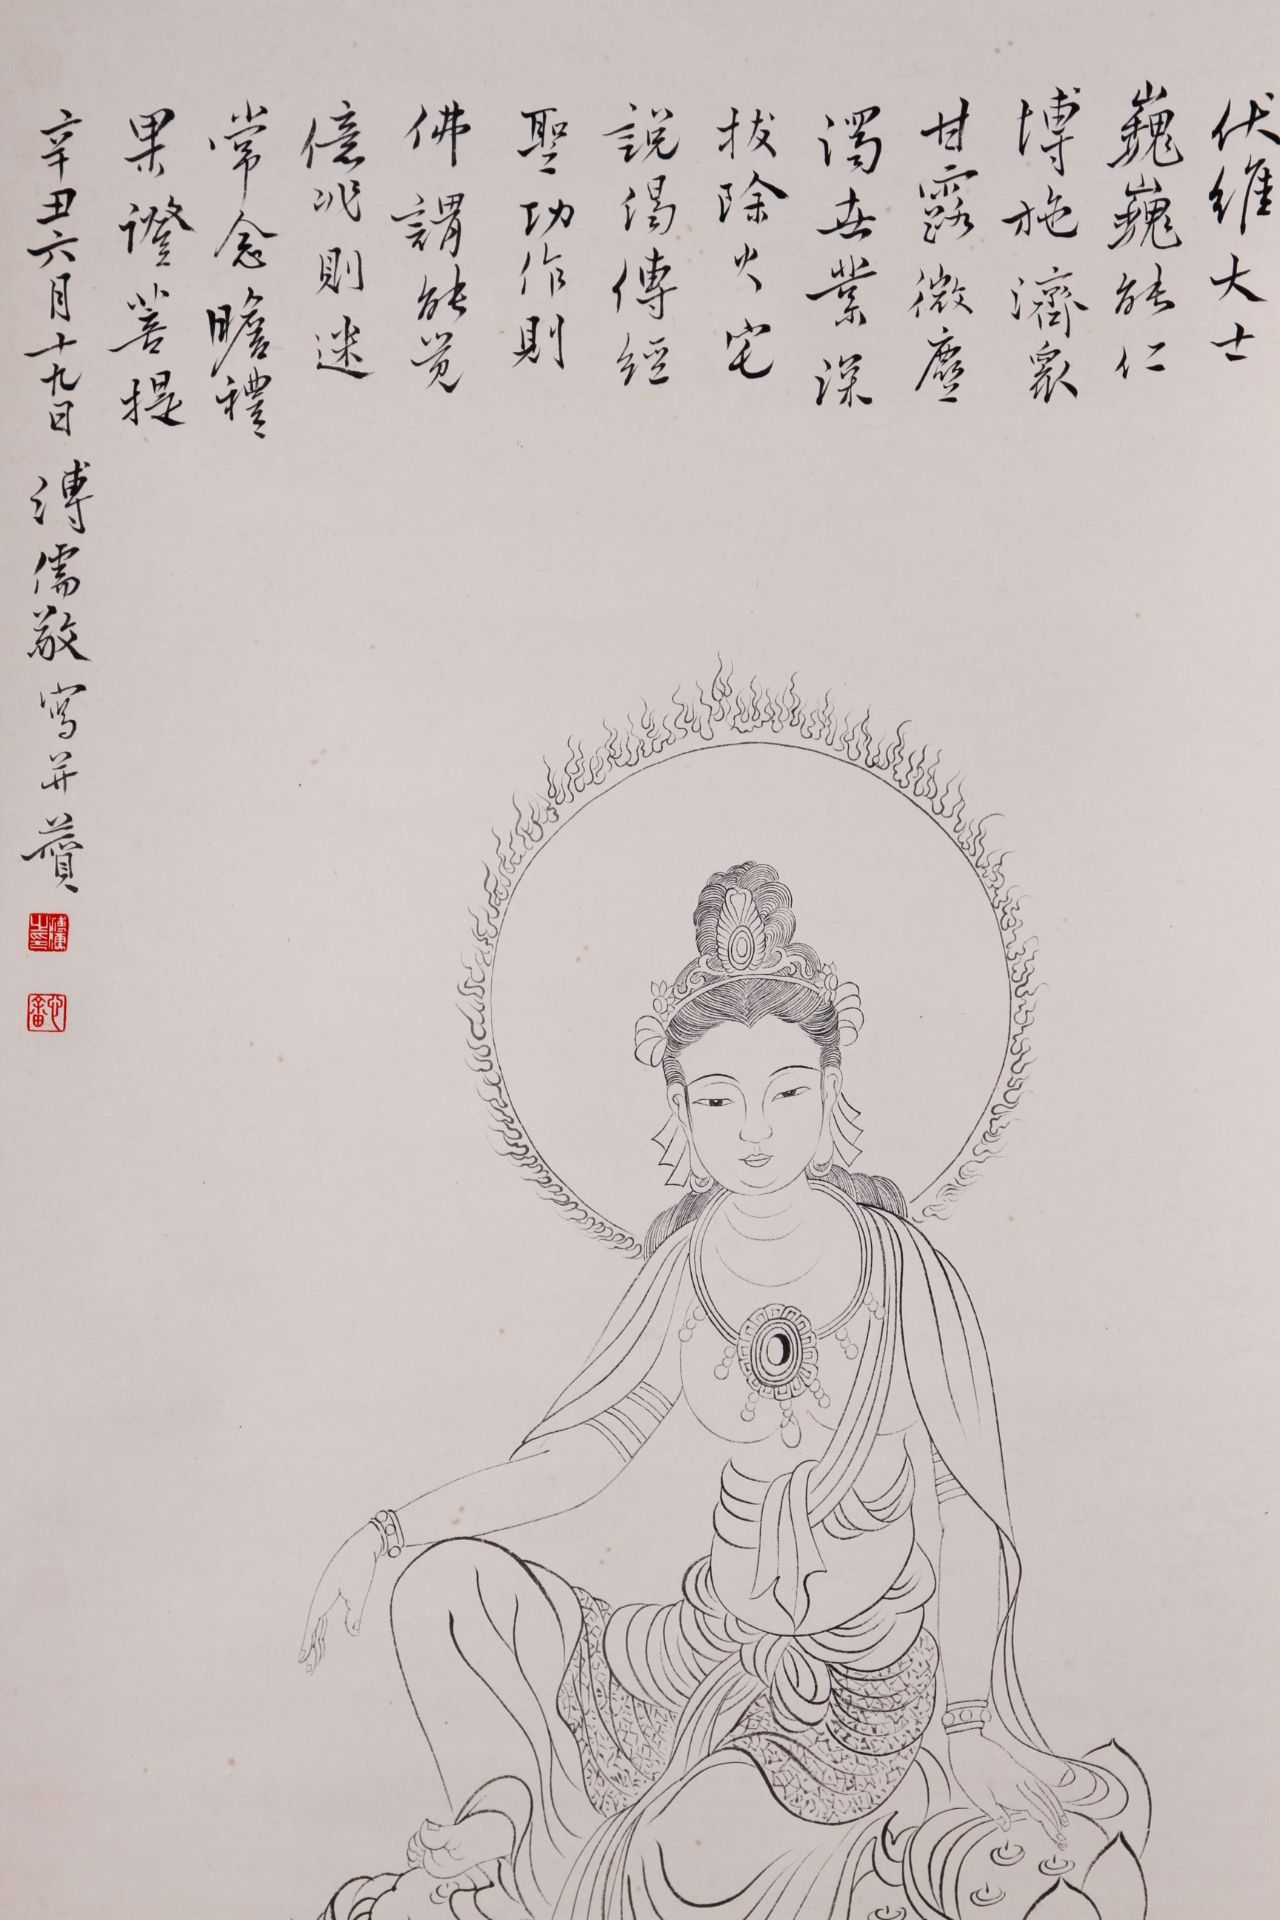 伏維大士
巍巍能仁
博施濟眾
甘露微塵
濁世業深
拔除火宅
說偈傳經
聖功作則
佛謂能覺
億兆則迷
常念瞻禮
果證菩提
辛丑六月十九日溥儒敬寫并贊
溥儒之印
心畬